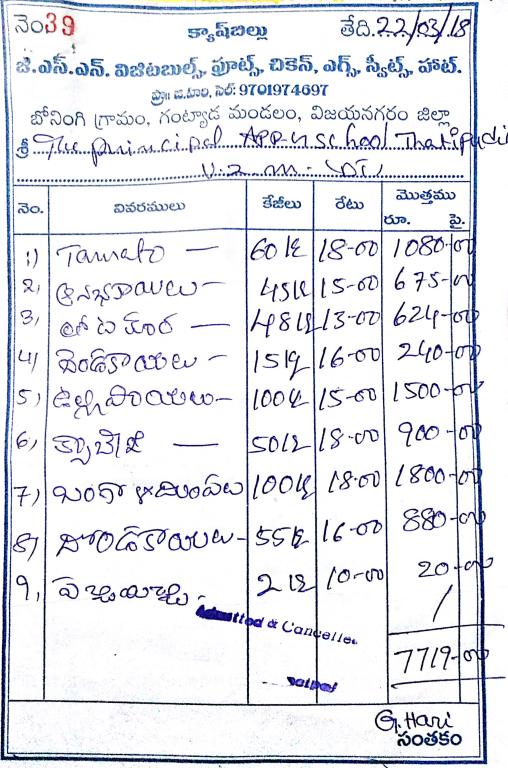 నెం 39 క్యాష్‌బిల్లు తేది. 22/03/18
జి.ఎస్.ఎన్. విజిటబుల్స్, ఫ్రూట్స్, చికెన్, ఎగ్స్, స్వీట్స్, హాట్.
ప్రొ॥ జి.హరి, సెల్: 9701974697
బోనంగి గ్రామం, గంట్యాడ మండలం, విజయనగరం జిల్లా
శ్రీ The principal APR school Thatipudi
నెం. వివరములు కేజీలు రేటు మొత్తము
రూ. పై.
1) Tamato — 60 k 18-00 1080-00
2, ఆనభకాయలు - 45 k 15-00 675-00
3, తోటకూర — 48 k 13-00 624-00
4) బెండకాయలు - 15 k 16-00 240-00
5) ఉల్లిపాయలు - 100 k 15-00 1500-00
6, క్యాబేజి — 50 k 18-00 900-00
7) బంగాళదుంపలు 100 k 18.00 1800-00
8) దొండకాయలు - 55 k 16-00 880-00
9, 2 k 10-00 20-00
Admitted & Cancelled
7719-00
G. Hari
సంతకం